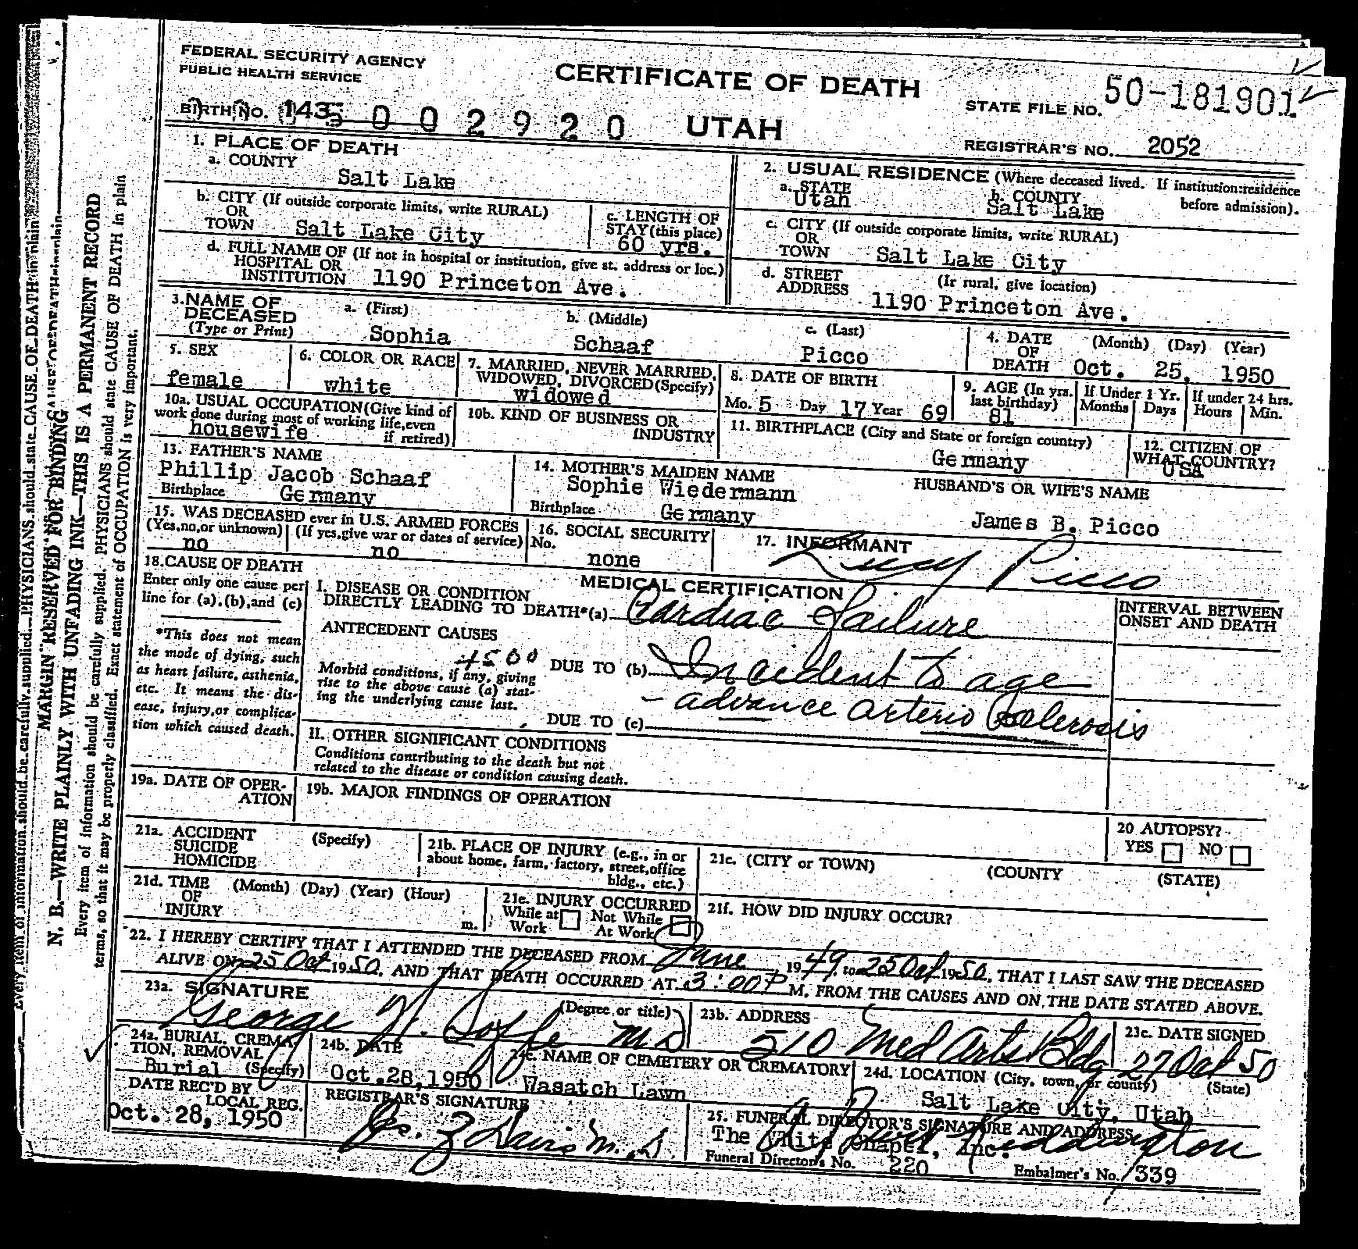 FEDERAL SECURITY AGENCY
PUBLIC HEALTH SERVICE
CERTIFICATE OF DEATH
STATE FILE NO. 50-181901
BIRTH NO. 143 002920 UTAH
REGISTRAR'S NO. 2052
1. PLACE OF DEATH
a. COUNTY
Salt Lake
2. USUAL RESIDENCE (Where deceased lived. If institution:residence before admission).
a. STATE
Utah
b. COUNTY
Salt Lake
b. CITY (If outside corporate limits, write RURAL)
OR
TOWN Salt Lake City
c. LENGTH OF
STAY(this place)
60 yrs.
c. CITY (If outside corporate limits, write RURAL)
OR
TOWN Salt Lake City
d. FULL NAME OF (If not in hospital or institution, give st. address or loc.)
HOSPITAL OR
INSTITUTION 1190 Princeton Ave.
d. STREET (If rural, give location)
ADDRESS
1190 Princeton Ave.
3. NAME OF DECEASED
(Type or Print)
a. (First)
Sophia
b. (Middle)
Schaaf
c. (Last)
Picco
4. DATE OF DEATH (Month) (Day) (Year)
Oct. 25, 1950
5. SEX
female
6. COLOR OR RACE
white
7. MARRIED, NEVER MARRIED,
WIDOWED, DIVORCED(Specify)
widowed
8. DATE OF BIRTH
Mo. 5 Day 17 Year 69
9. AGE (In yrs. last birthday)
81
If Under 1 Yr.
Months Days
If under 24 hrs.
Hours Min.
10a. USUAL OCCUPATION(Give kind of
work done during most of working life,even
if retired)
housewife
10b. KIND OF BUSINESS OR
INDUSTRY
11. BIRTHPLACE (City and State or foreign country)
Germany
12. CITIZEN OF
WHAT COUNTRY?
USA
13. FATHER'S NAME
Phillip Jacob Schaaf
Birthplace Germany
14. MOTHER'S MAIDEN NAME
Sophie Wiedermann
Birthplace Germany
HUSBAND'S OR WIFE'S NAME
James B. Picco
15. WAS DECEASED ever in U.S. ARMED FORCES
(Yes,no,or unknown) (If yes,give war or dates of service)
no no
16. SOCIAL SECURITY
No.
none
17. INFORMANT
Lucy Picco
18. CAUSE OF DEATH
Enter only one cause per
line for (a),(b),and (c)
*This does not mean
the mode of dying, such
as heart failure, asthenia,
etc. It means the dis-
ease, injury,or complica-
tion which caused death.
MEDICAL CERTIFICATION
I. DISEASE OR CONDITION
DIRECTLY LEADING TO DEATH*(a) Cardiac failure
ANTECEDENT CAUSES
4500
Morbid conditions, if any, giving
rise to the above cause (a) stat-
ing the underlying cause last.
DUE TO (b) Incident to age
- advance arterio sclerosis
DUE TO (c)
INTERVAL BETWEEN
ONSET AND DEATH
II. OTHER SIGNIFICANT CONDITIONS
Conditions contributing to the death but not
related to the disease or condition causing death.
19a. DATE OF OPER-
ATION
19b. MAJOR FINDINGS OF OPERATION
20 AUTOPSY?
YES NO
21a. ACCIDENT
SUICIDE
HOMICIDE
(Specify)
21b. PLACE OF INJURY (e.g., in or
about home, farm, factory, street,office
bldg., etc.)
21c. (CITY or TOWN) (COUNTY (STATE)
21d. TIME
OF
INJURY
(Month) (Day) (Year) (Hour)
m.
21e. INJURY OCCURRED
While at
Work
Not While
At Work
21f. HOW DID INJURY OCCUR?
22. I HEREBY CERTIFY THAT I ATTENDED THE DECEASED FROM June 1949, to 25 Oct 1950, THAT I LAST SAW THE DECEASED
ALIVE ON 25 Oct 1950, AND THAT DEATH OCCURRED AT 3:00 P M. FROM THE CAUSES AND ON THE DATE STATED ABOVE.
23a. SIGNATURE (Degree or title)
George N. MD
23b. ADDRESS
510 Med Arts Bldg
23c. DATE SIGNED
27 Oct 50
24a. BURIAL, CREMA-
TION, REMOVAL
(Specify)
Burial
24b. DATE
Oct.28,1950
24c. NAME OF CEMETERY OR CREMATORY
Wasatch Lawn
24d. LOCATION (City, town, or county) (State)
Salt Lake City, Utah
DATE REC'D BY
LOCAL REG.
Oct. 28, 1950
REGISTRAR'S SIGNATURE
25. FUNERAL DIRECTOR'S SIGNATURE AND ADDRESS
The White Chapel, Inc.
Funeral Director's No. 220
Embalmer's No. 339
Every item of information should be carefully supplied. PHYSICIANS should state CAUSE OF DEATH in plain
MARGIN RESERVED FOR BINDING
N. B.—WRITE PLAINLY WITH UNFADING INK—THIS IS A PERMANENT RECORD
Every item of information should be carefully supplied. PHYSICIANS should state CAUSE OF DEATH in plain
terms, so that it may be properly classified. Exact statement of OCCUPATION is very important.